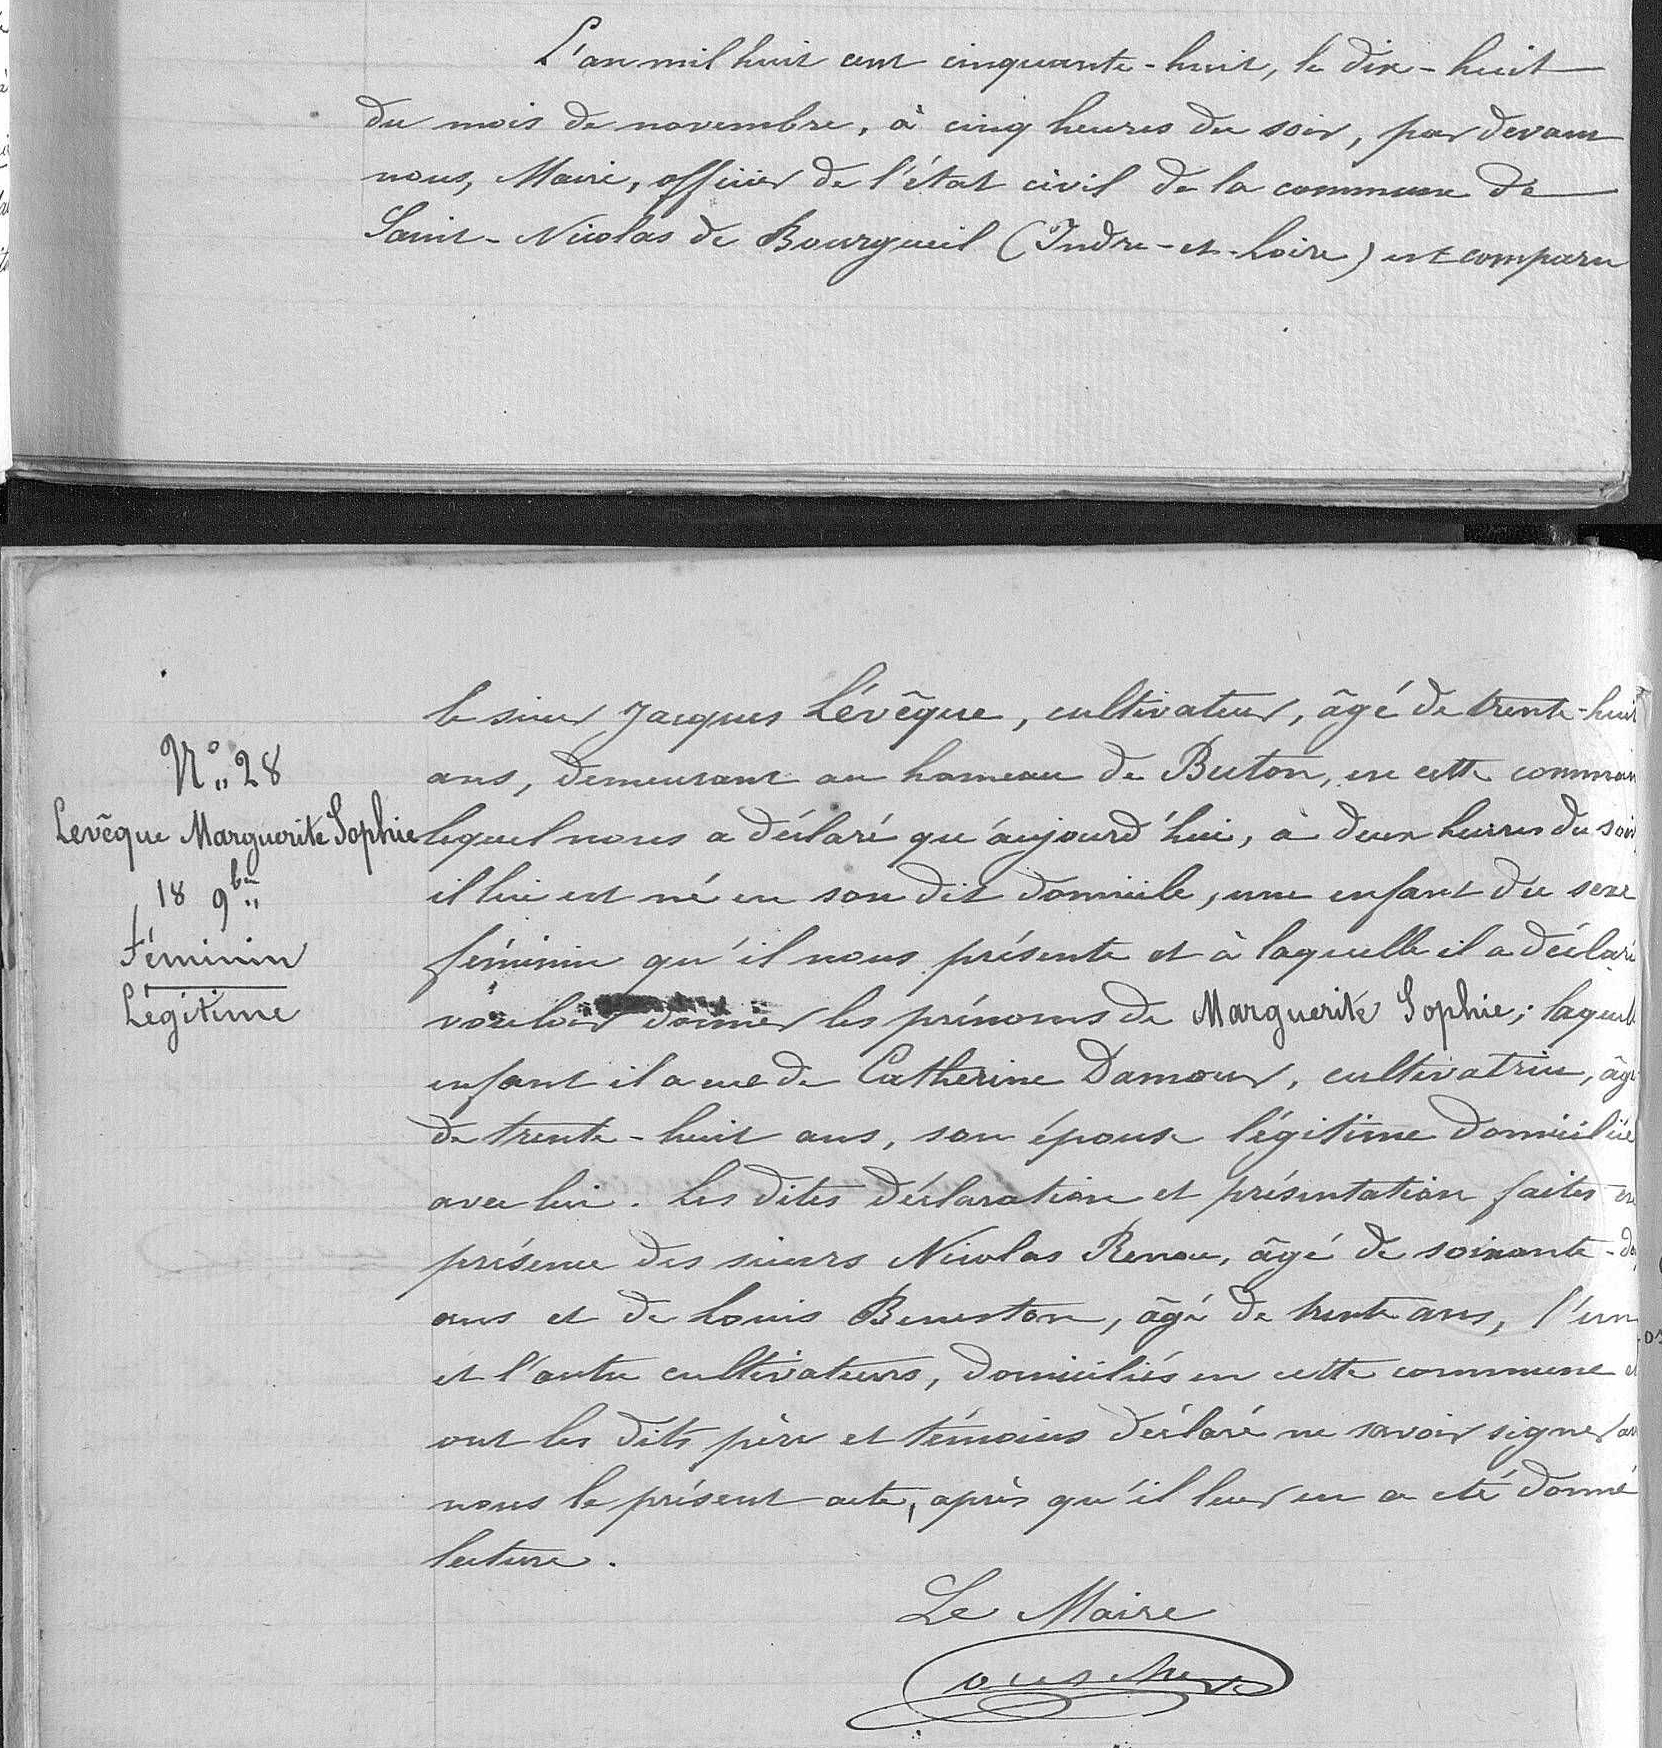 L'an mil huit cent cinquante-huit, le dix-huit
du mois de novembre, à cinq heures du soir, par devant
nous, Maire, officier de l'état civil de la commune de
Saint-Nicolas de Bourgueil (Indre-et-Loire) est comparu
le sieur Jacques Lévêque, cultivateur, âgé de trente-huit
ans, demeurant au hameau de Buton, en cette commun
lequel nous a déclaré qu'aujourd'hui, à deux heures du soir,
il lui est né en son dit domicile, une enfant du sexe
féminin qu'il nous présente et à laquelle il a déclaré
vouloir donner les prénoms de Marguerite Sophie; laquelle
enfant il a eue de Catherine Damour, cultivatrice, âgé
de trente-huit ans, son épouse légitime domiciliée
avec lui. Les dites déclaration et présentation faites en
présence des sieurs Nicolas Renou, âgé de soixante-
ans et de Louis Beneston, âgé de trente ans, l'un
et l'autre cultivateurs, domiciliés en cette commune et
ont les dits père et témoins déclaré ne savoir signer
nous le présent acte, après qu'il leur en a été donné
lecture.
Le Maire
N° 28
Levêque Marguerite Sophie
18 9bre
Féminin
Légitime